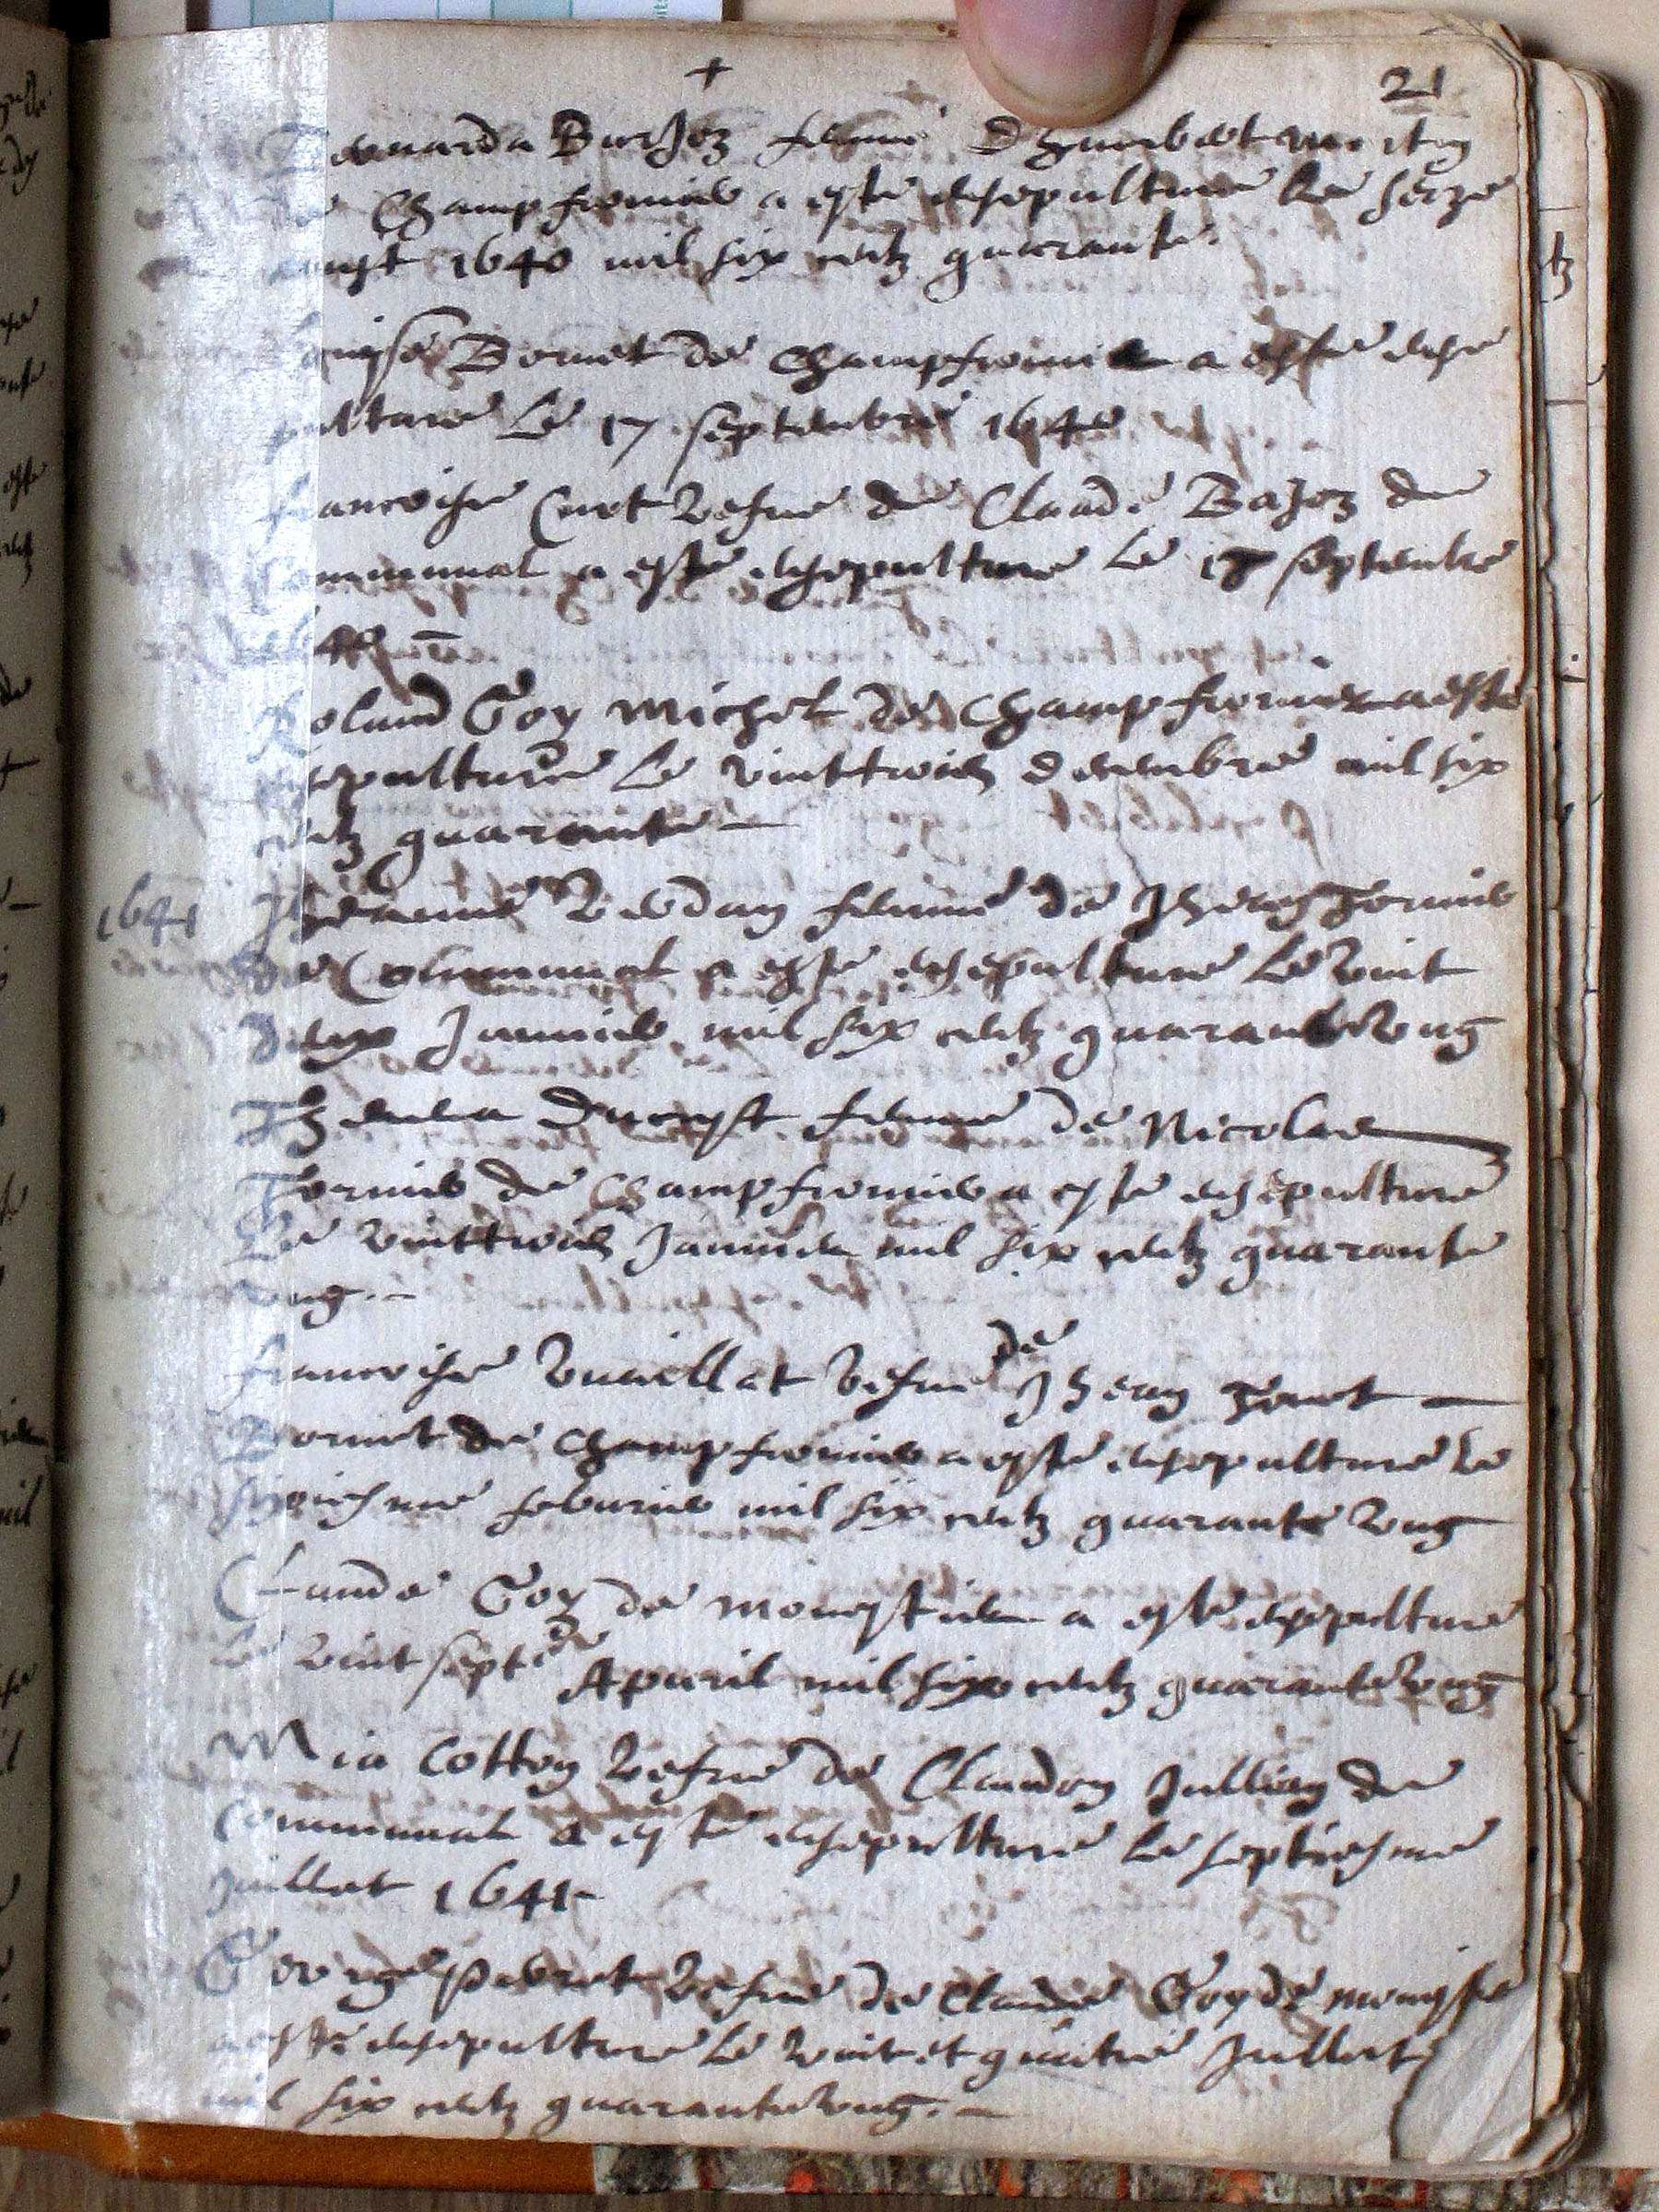 +
21
Bernarda Burjoz femme d humbert
de Champfromier a este ensepulture le seize
aougst 1640 mil six centz quarante
Louyse Bornet de Champfromier a este ense
pulture le 17 septembre 1640
francoise Curt vefue de Claude Bajoz de
Communal a este ensepulture le 18 septembre
1640
Roland Goy Michel de Champfromier a este
ensepulture le vinttrois decembre mil six
centz quarante
1641 Jheanne Verdan femme de Jhean Tornier
de Communal a este ensepulture le vint
deux Januier mil six centz quarante vng
Thevena Ducrest femme de Nicolas
Tornier de Champfromier a este ensepulture
le vinttrois Januier mil six centz quarante
vng
francoise Vuaillat vefue de Jhean Tornet
Bornet de Champfromier a este ensepulture le
sixoiesme feburier mil six centz quarante vng
Claude Goy de monestier a este ensepulture
le vint septe de Apuril mil six centz quarante vng
Mia Cotton vefue de Claudon Jullien de
Communal a este ensepulture le septiesme
Juillet 1641
George perret vefue de Claude Goy de monestier
a este ensepulture le vint et quatre Jullet
mil six centz quarante vng